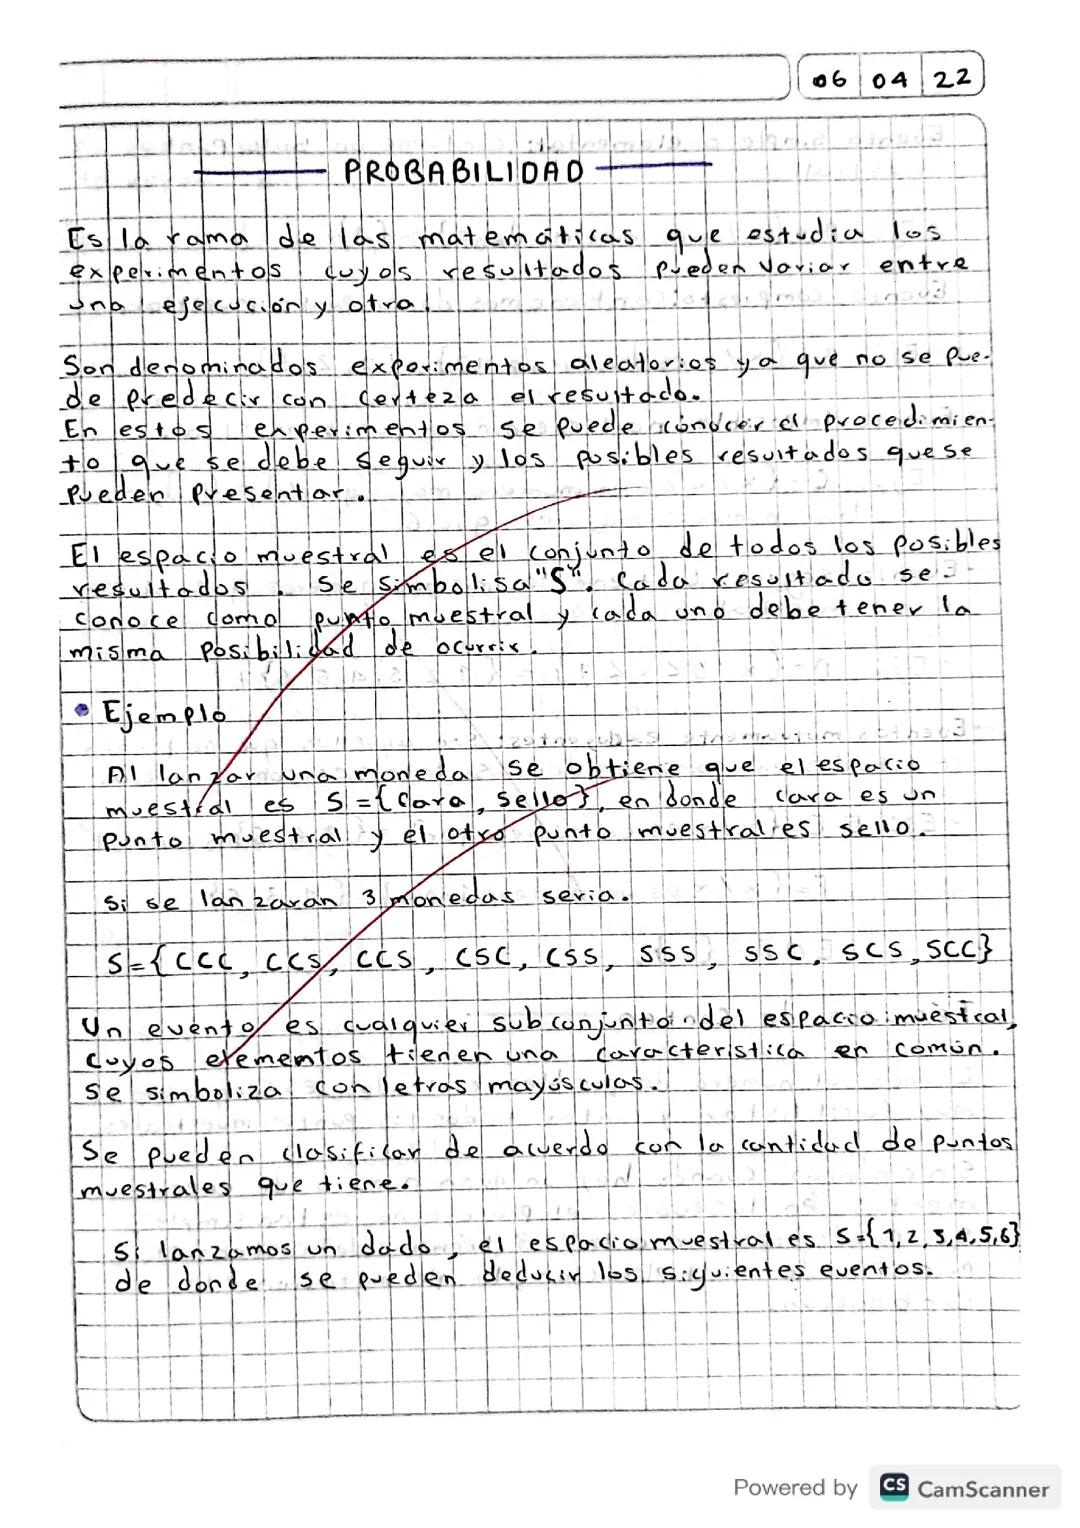 06 04 22
PROBABILIDAD
Es la rama de las matemáticas que estudia los
experimentos cuyos resultados pueden variar entre
una ejecución y otra.
Son denominados experimentos aleatorios ya que no se pue-
de predecir con certeza el resultado.
En estos experimentos se puede conocer el procedimien-
to que se debe seguir y los posibles resultados que se
pueden presentar.
El espacio muestral es el conjunto de todos los posibles
resultados. Se simbolisa "S". Cada resultado se
conoce como punto muestral y cada uno debe tener la
misma posibilidad de ocurrir.
• Ejemplo
Al lanzar una moneda se obtiene que el espacio
muestral es S={Cara, Sello}, en donde cara es un
punto muestral y el otro punto muestral es sello.
Si se lanzaran 3 monedas seria.
S={CCC, CCS, CCS, CSC, CSS, SSS, SSC, SCS, SCC}
Un evento es cualquier subconjunto del espacio muestral,
cuyos elementos tienen una caracteristica en común.
Se simboliza con letras mayúsculas.
Se pueden clasificar de acuerdo con la cantidad de puntos
muestrales que tiene.
Si lanzamos un dado, el espacio muestral es S={1,2,3,4,5,6}
de donde se pueden deducir los siguientes eventos.
Powered by CS CamScanner